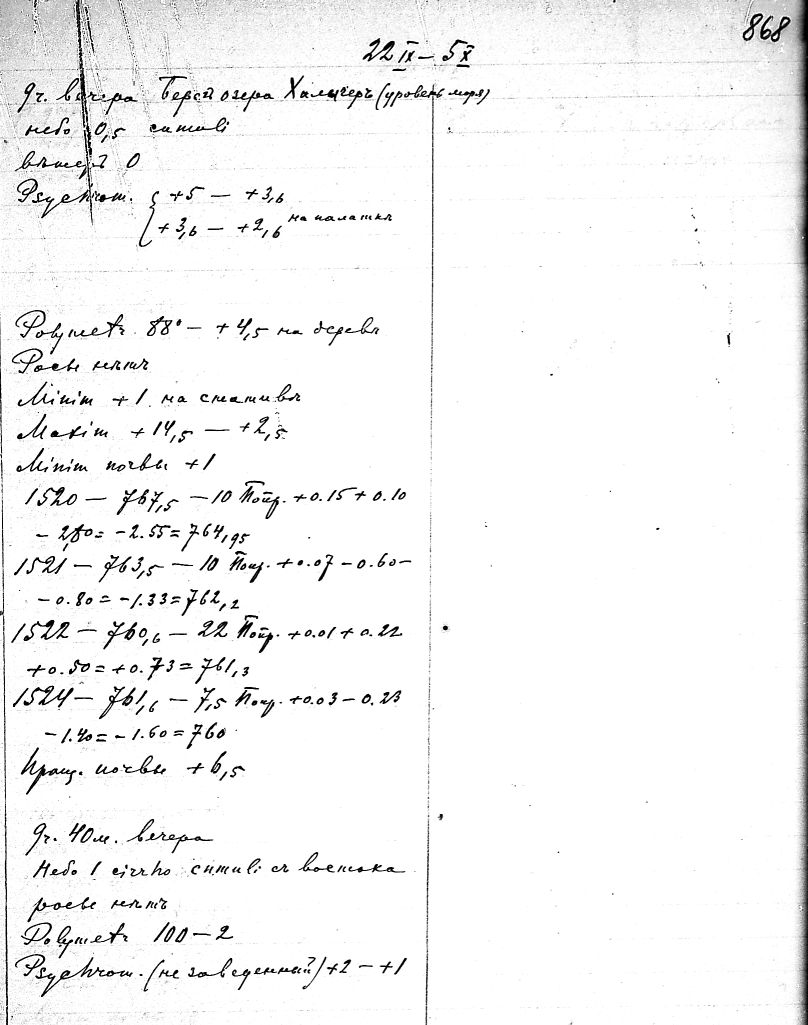 868
22 IX – 5 X
9ч. вечера Берег озера (уровень моря)
небо 0,5 cumuli
вѣтеръ 0
Psychrom. { +5 — +3,6
{ +3,6 — +2,6 на палаткѣ
Polymetr 88° — +4,5 на деревѣ
Росы нѣтъ
Minim +1 на стативѣ
Maxim +14,5 — +2,5
Minim почвы +1
1520 — 767,5 — 10 Попр. +0.15 +0.10
– 2,80 = –2.55 = 764,95
1521 — 763,5 — 10 Попр. +0.07 – 0.60 –
– 0.80 = –1.33 = 762,2
1522 — 760,6 — 22 Попр. +0.01 + 0.22
+0.50 = +0.73 = 761,3
1524 — 761,6 — 7,5 Попр. +0.03 – 0.23
– 1.40 = – 1.60 = 760
Пращ. почвы +6,5
9ч. 40м. вечера
Небо 1 cirrho cumuli съ востока
росы нѣтъ
Polymetr 100 — 2
Psychrom. (не заведенный) +2 — +1